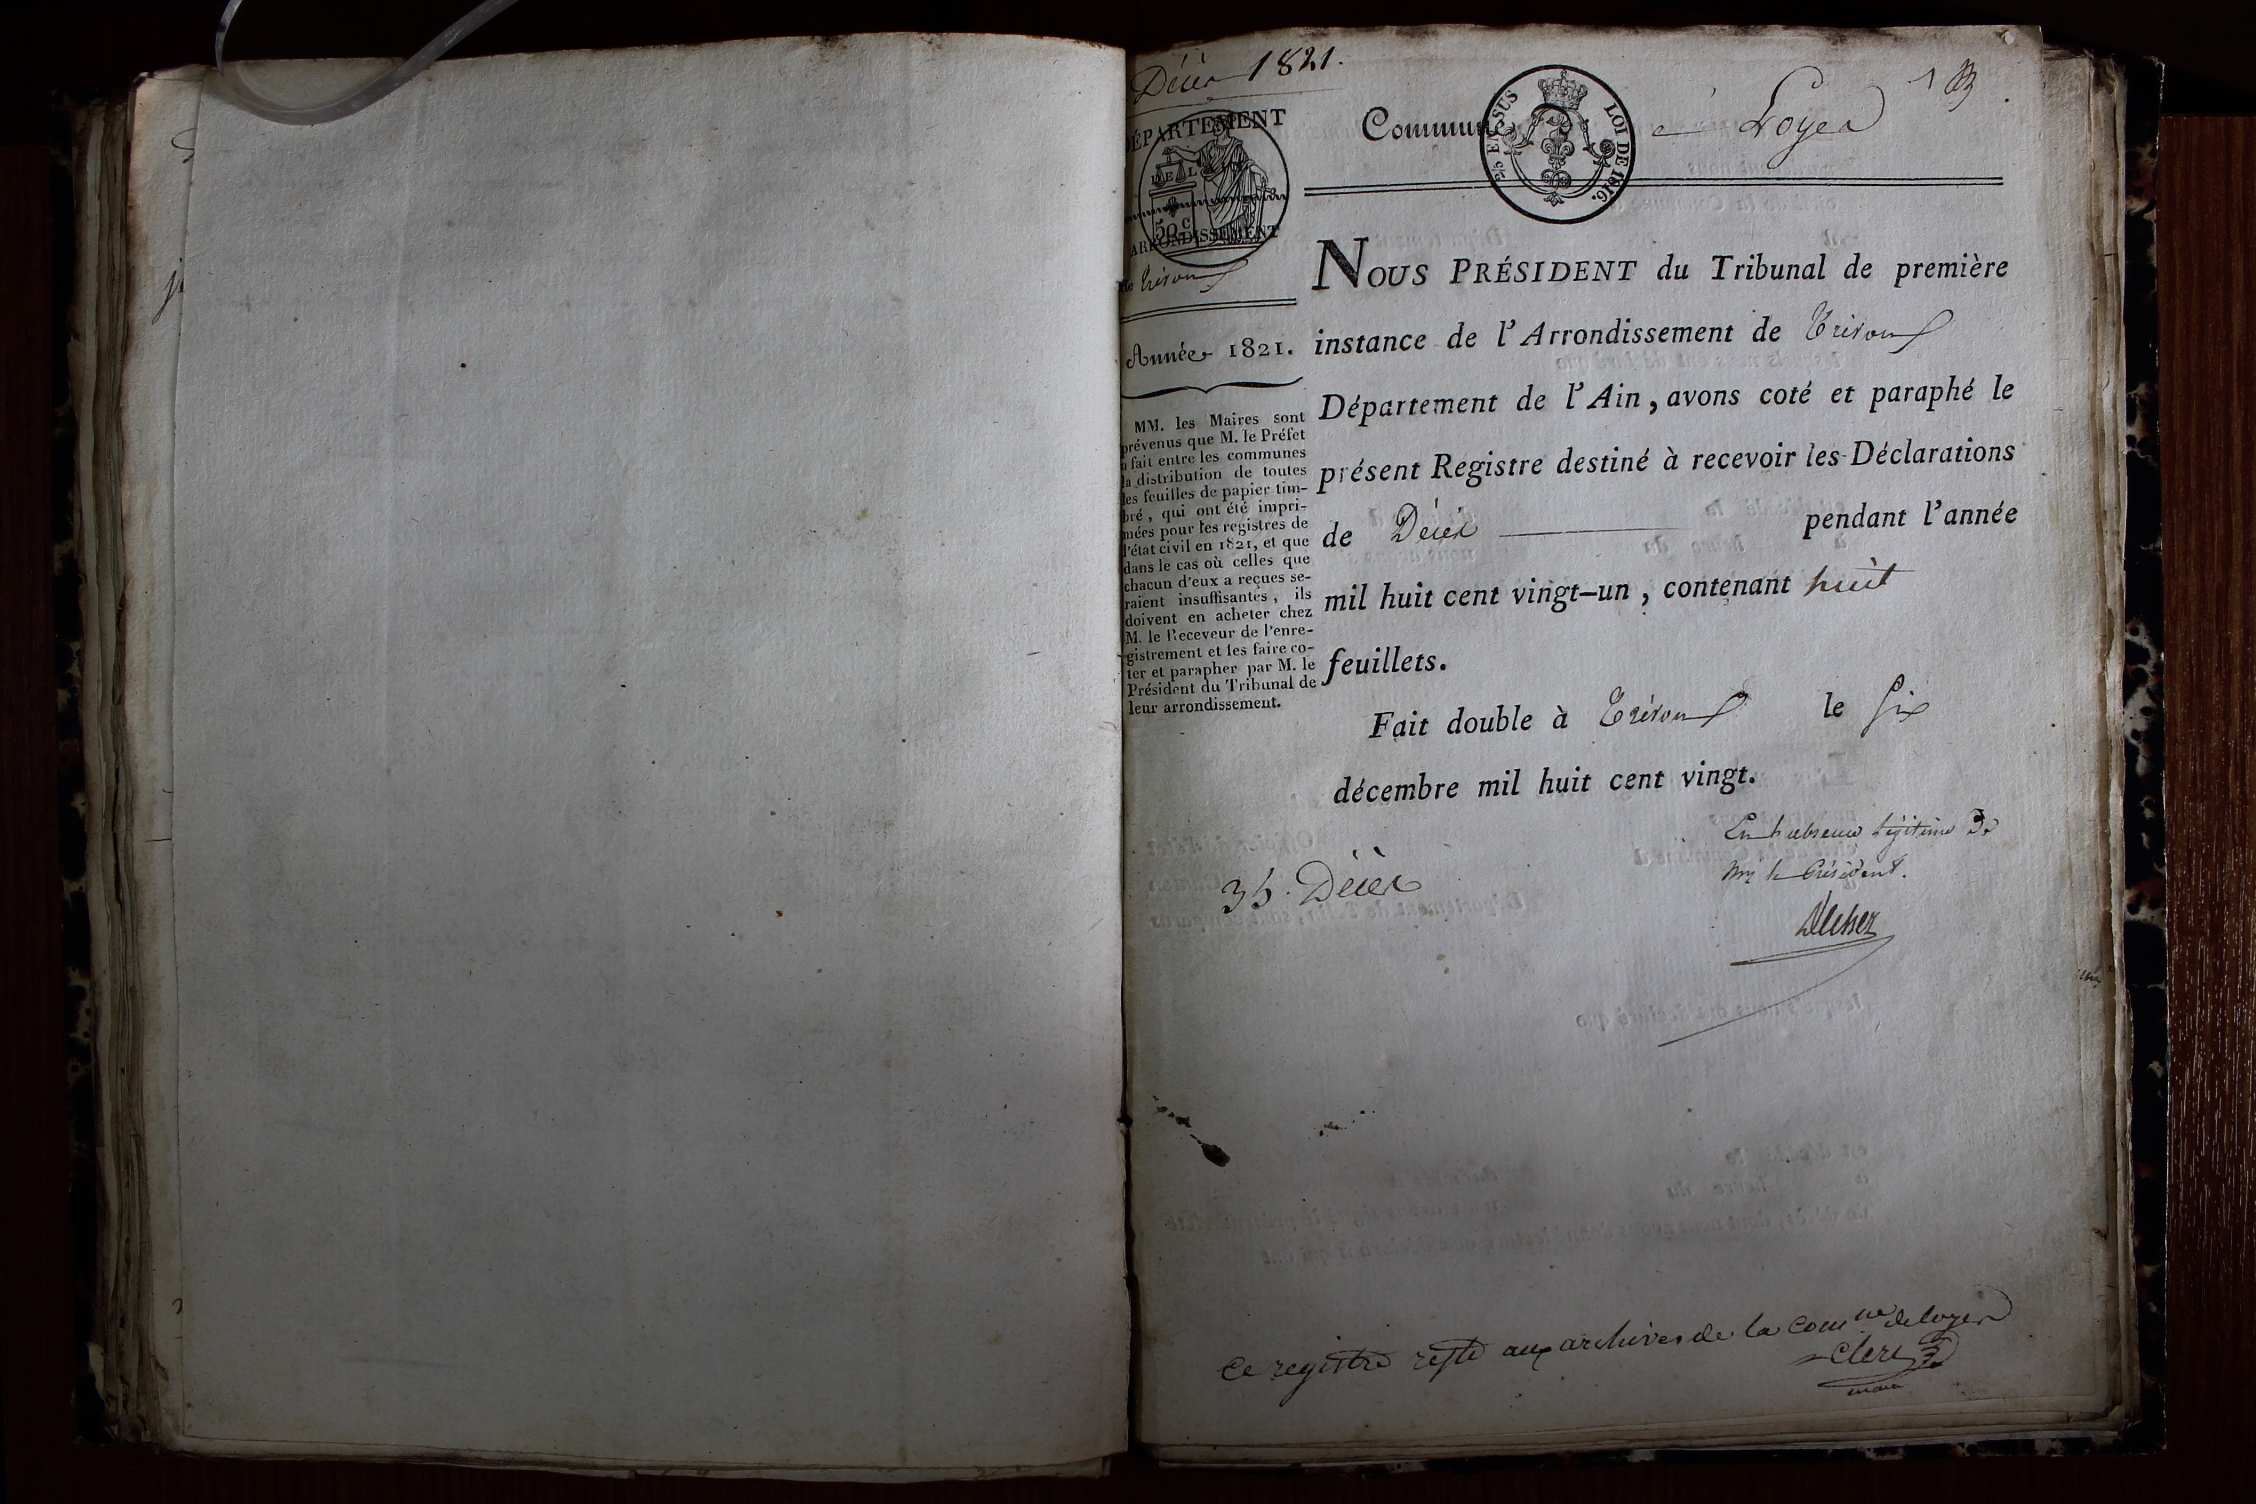 Décès 1821.
DÉPARTEMENT
DE L'
50 C
ARRONDISSEMENT
de Trévoux
Année 1821.
MM. les Maires sont
prévenus que M. le Préfet
a fait entre les communes
la distribution de toutes
les feuilles de papier tim-
bré, qui ont été impri-
mées pour les registres de
l'état civil en 1821, et que
dans le cas où celles que
chacun d'eux a reçues se-
raient insuffisantes, ils
doivent en acheter chez
M. le Receveur de l'enre-
gistrement et les faire co-
ter et parapher par M. le
Président du Tribunal de
leur arrondissement.
Commune de Loyes
EN SUS
LOI DE 1816.
NOUS PRÉSIDENT du Tribunal de première
instance de l'Arrondissement de Trévoux
Département de l'Ain, avons coté et paraphé le
présent Registre destiné à recevoir les Déclarations
de Décès pendant l'année
mil huit cent vingt-un, contenant huit
feuillets.
Fait double à Trévoux le six
décembre mil huit cent vingt.
En l'absence légitime de
Mr le Président.
35. Décès
Ce registre reste aux archives de la Comne de loyes
Clerc
maire